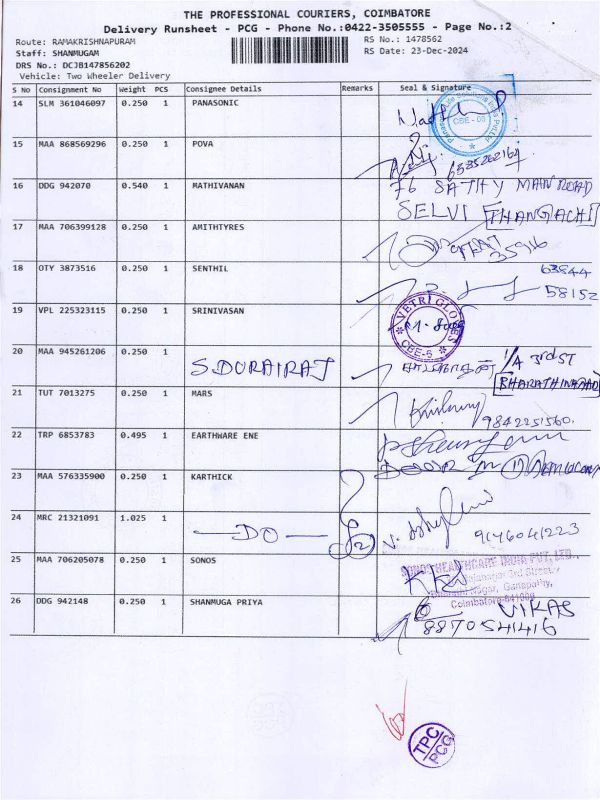 THE PROFESSIONAL COURIERS, COIMBATORE
Delivery Runsheet - PCG - Phone No.:0422-3505555 - Page No.:2
Route: RAMAKRISHNAPURAM
RS No.: 1478562
Staff: SHANMUGAM
RS Date: 23-Dec-2024
DRS No.: DCJB147856202
Vehicle: Two Wheeler Delivery
S No Consignment No Weight PCS Consignee Details Remarks Seal & Signature
14 SLM 361046097 0.250 1 PANASONIC
CBE - 06
15 MAA 868569296 0.250 1 POVA
16 DDG 942070 0.540 1 MATHIVANAN
76 SATHY MAIN ROAD
SELVI THANGACHI
17 MAA 706399128 0.250 1 AMITHTYRES
35916
18 OTY 3873516 0.250 1 SENTHIL
63844
58152
19 VPL 225323115 0.250 1 SRINIVASAN
VETRI GLOBES
CBE-6
20 MAA 945261206 0.250 1 S.DURAIRAJ
1/A 3rd ST
21 TUT 7013275 0.250 1 MARS
9842251560.
22 TRP 6853783 0.495 1 EARTHWARE ENE
23 MAA 576335900 0.250 1 KARTHICK
24 MRC 21321091 1.025 1 —DO—
2
9146041223
25 MAA 706205078 0.250 1 SONOS
SONOS HEALTHCARE INDIA PVT. LTD.,
3rd Street,
Nagar, Ganapathy,
Coimbatore-641006
26 DDG 942148 0.250 1 SHANMUGA PRIYA
VIKAS
8870541416
TPC
PCG